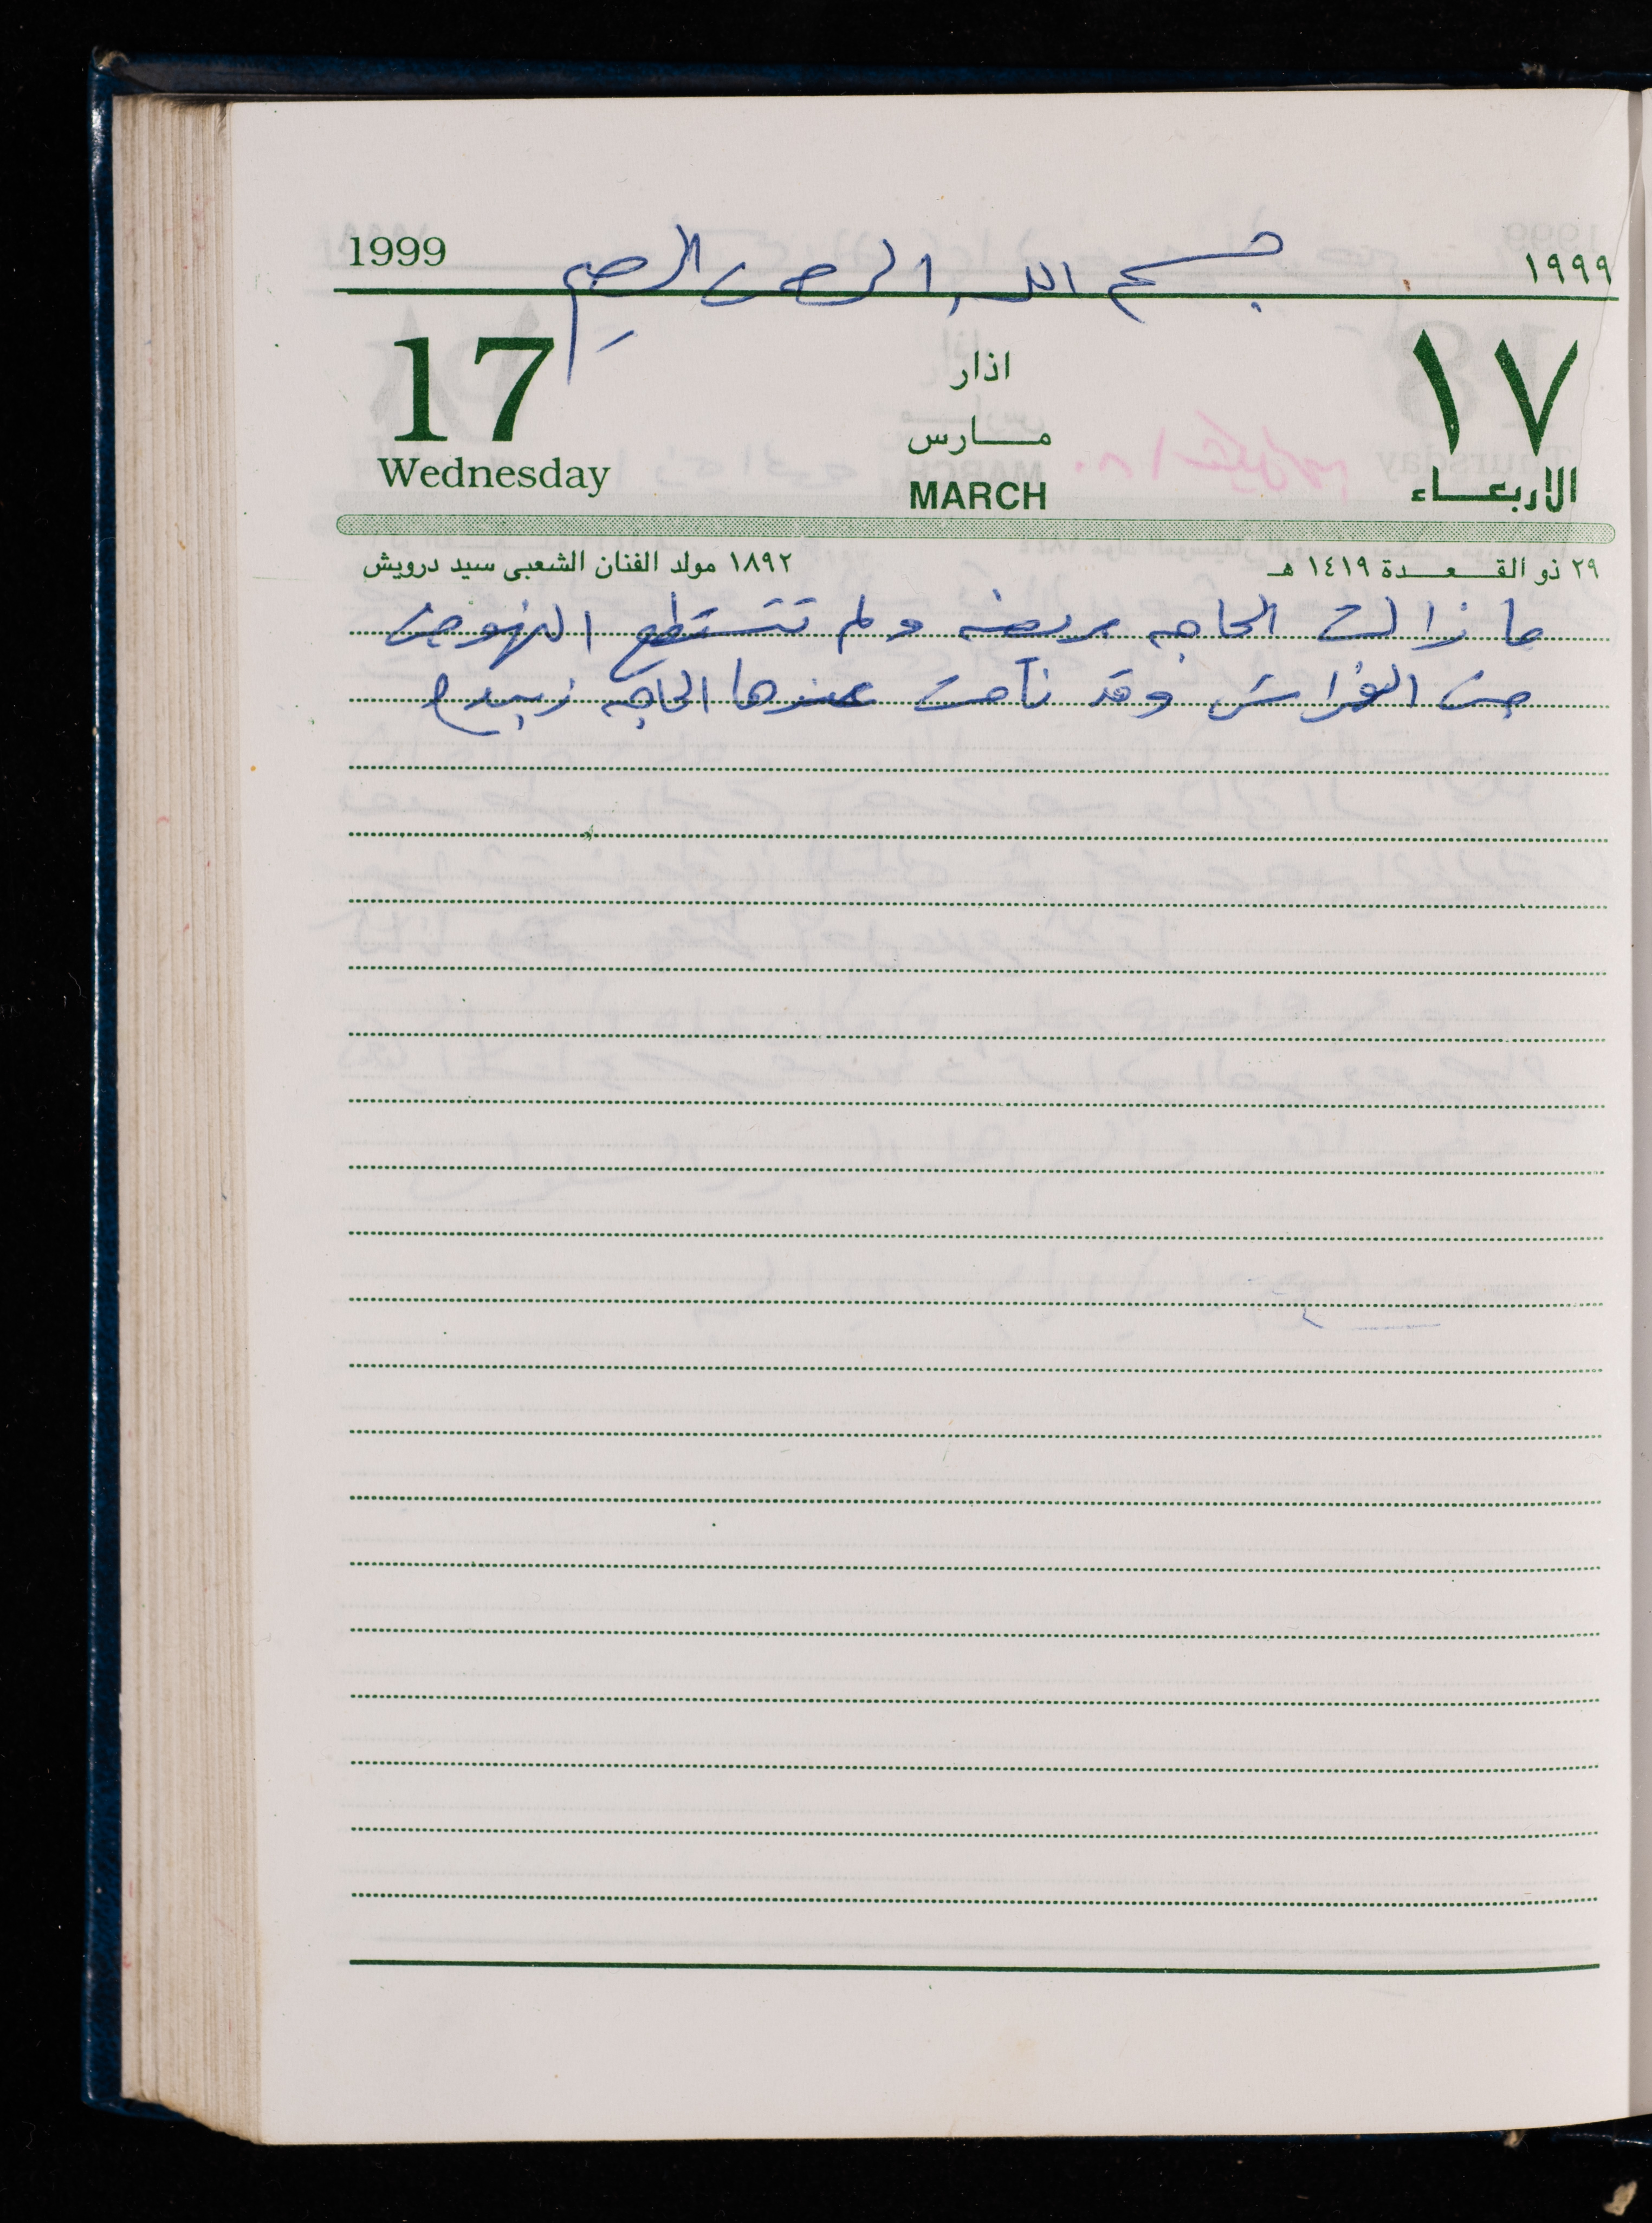 1999 بسم الله الرحمن الرحيم ١٩٩٩
17 اذار ١٧
مارس
Wednesday MARCH الاربعاء
٢٩ ذو القعدة ١٤١٩ هـ ١٨٩٢ مولد الفنان الشعبى سيد درويش
ما زالت الحاجه مريضه ولم تستطع النهوض
من الفراش وقد نامت عندها الحاجه زبيده